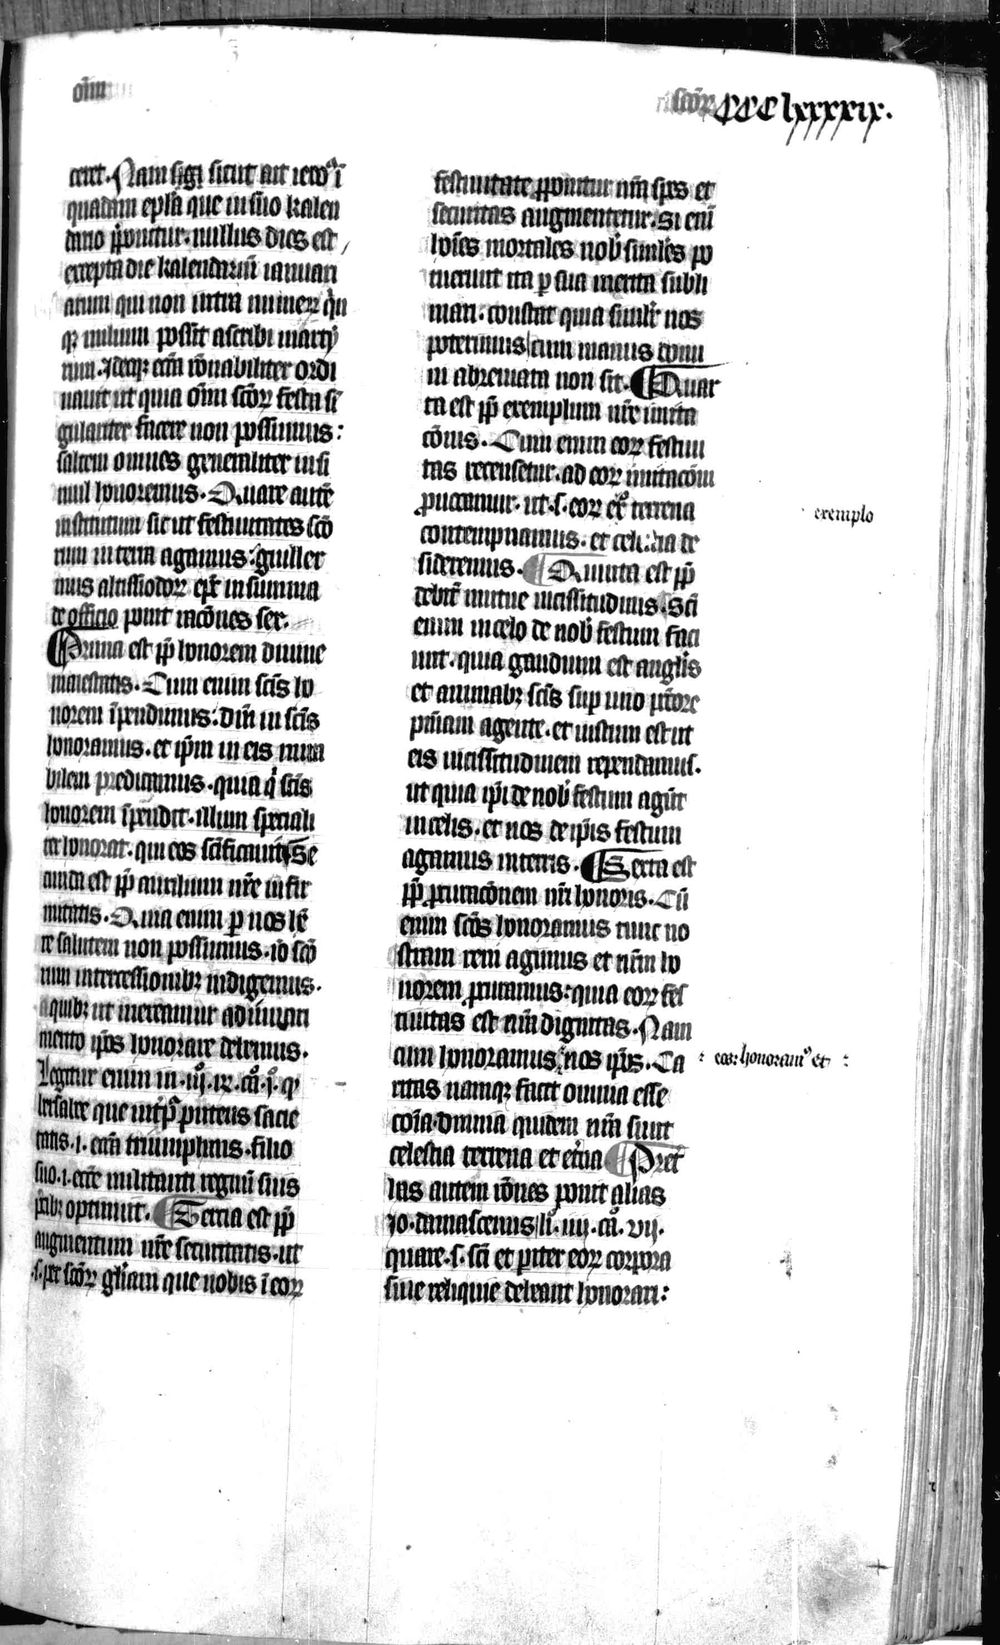 oı̄m
scōꝝ CCClxxxxix.
ceret. Nam sigͥ sicut ait iero⁹ ī
quadam epl̄a que in suo kalen
dario p̄ponitur. nullus dies est
excepta die kalendarū ianuari
arum qui non intra numerꝝ qͥn
qꝫ milium possit ascribi martẏ
rum. Ideoqꝫ ecc̄a rōnabiliter ordi
nauit ut quia oı̄m scōꝝ festa sī
gulariter facere non possumus:
saltem omnes generaliter in si
mul honoremus. Quare autē
institutum sit ut festiuitates scō
rum in terra agamus: guiller
mus altissiodoꝝ ep̄c in summa
de officio ponit racōnes sex.
Prima est ꝓp̄ honorem diuine
maiestatis. Cum enim scīs ho
norem īpendimus: dn̄m in scīs
honoramus. et ip̄m in eis mira
bilem predicamus. quia qͥ scīs
honorem īpendit. illum speciali
ter honorat. qui eos scīficauit. Se
cunda est ꝓp̄ auxilium nr̄e infir
mitatis. Quia enim ꝑ nos hr̄e
re salutem non possumus. iō scō
rum intercessionibꝫ indigemus.
a quibꝫ ut mereamur adiuuari
merito ip̄os honorare debemus.
Legitur enim in .iijͦ. R. cāͦ .jͦ. qͬ
bersabee que int̄ꝑ͛ puteus sacie
tatis .i. ecc̄a triumphans. filio
suo .i. ecc̄e militanti regnū suis
p̄cibꝫ optinuit. Tercia est ꝓp̄
augmentum nr̄e securitatis. ut
.s. ꝑ scōꝝ gl̄iam que nobis ī eoꝝ
festiuitate ꝓponitur nr̄a spes et
securitas augmentetur. Si enī
hoı̄es mortales nob̄ similes po
tuerunt ita ꝑ sua merita subli
mari. constat quia simil̄r nos
poterimus cum manus domi
ni abreuiata non sit. Quar
ta est ꝓp̄ exemplum nr̄e imita
cōnis. Cum enim eoꝝ festiui
tas recensetur. ad eoꝝ imitacōm
ꝓuocamur. ut .s. eoꝝ exͦ terrena
contempnamus. et celestia de
sideremus. Quinta est ꝓp̄
debitū mutue uicissitudinis. Scī
enim in celo de nob̄ festum faci
unt. quia gaudium est angl̄is
et animabꝫ scīs sup uno pc̄core
pn̄iam agente. et iustum est ut
eis uicissitudinem rependamus.
ut quia ip̄i de nob̄ festum agūt
in celis. et nos de ip̄is festum
agamus in terris. Sexta est
ꝓp̄ ꝓcuracōnem nr̄i honoris. Cū
enim scōs honoramus tunc no
stram rem agimus et nr̄m ho
norem ꝓcuramus: quia eoꝝ fes
tiuitas est nr̄a dignitas. Nam
cum honoramus nos ip̄os. Ca
ritas namqꝫ facit omnia esse
cōıa. omnia quidem nr̄a sunt
celestia terrena et et̄na. Pret̄
has autem rōnes ponit alias
Jo. damascenus lī. iiij. cāͦ. vij.
quare .s. scī et pariter eoꝝ corpora
siue reliquie debeant honorari:
exemplo
: eos: honoram⁹ et :